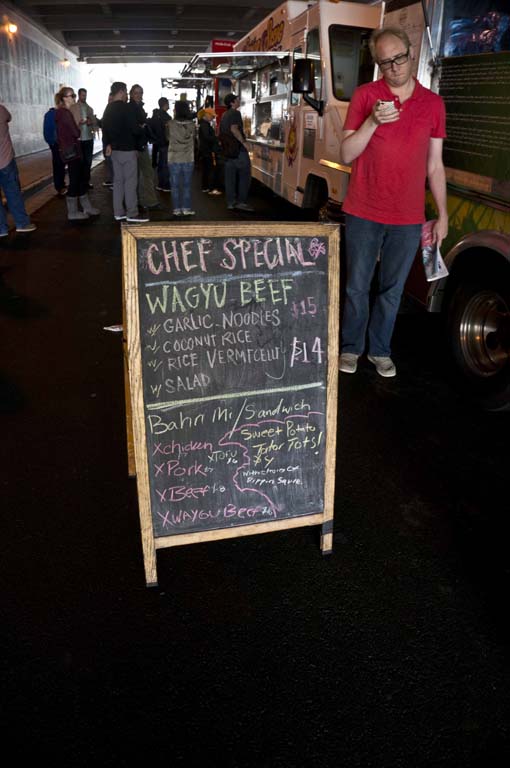 CHEF SPECIAL
WAGYU BEEF
w/ GARLIC NOODLES $15
w/ COCONUT RICE
w/ RICE VERMICELLY $14
w/ SALAD
Bahn Mi / Sandwich
x chicken
x TOFU
x Pork
x Beef
x WAYGU Beef
Sweet Potato
Tator Tots!
$4
Dippin Sauce